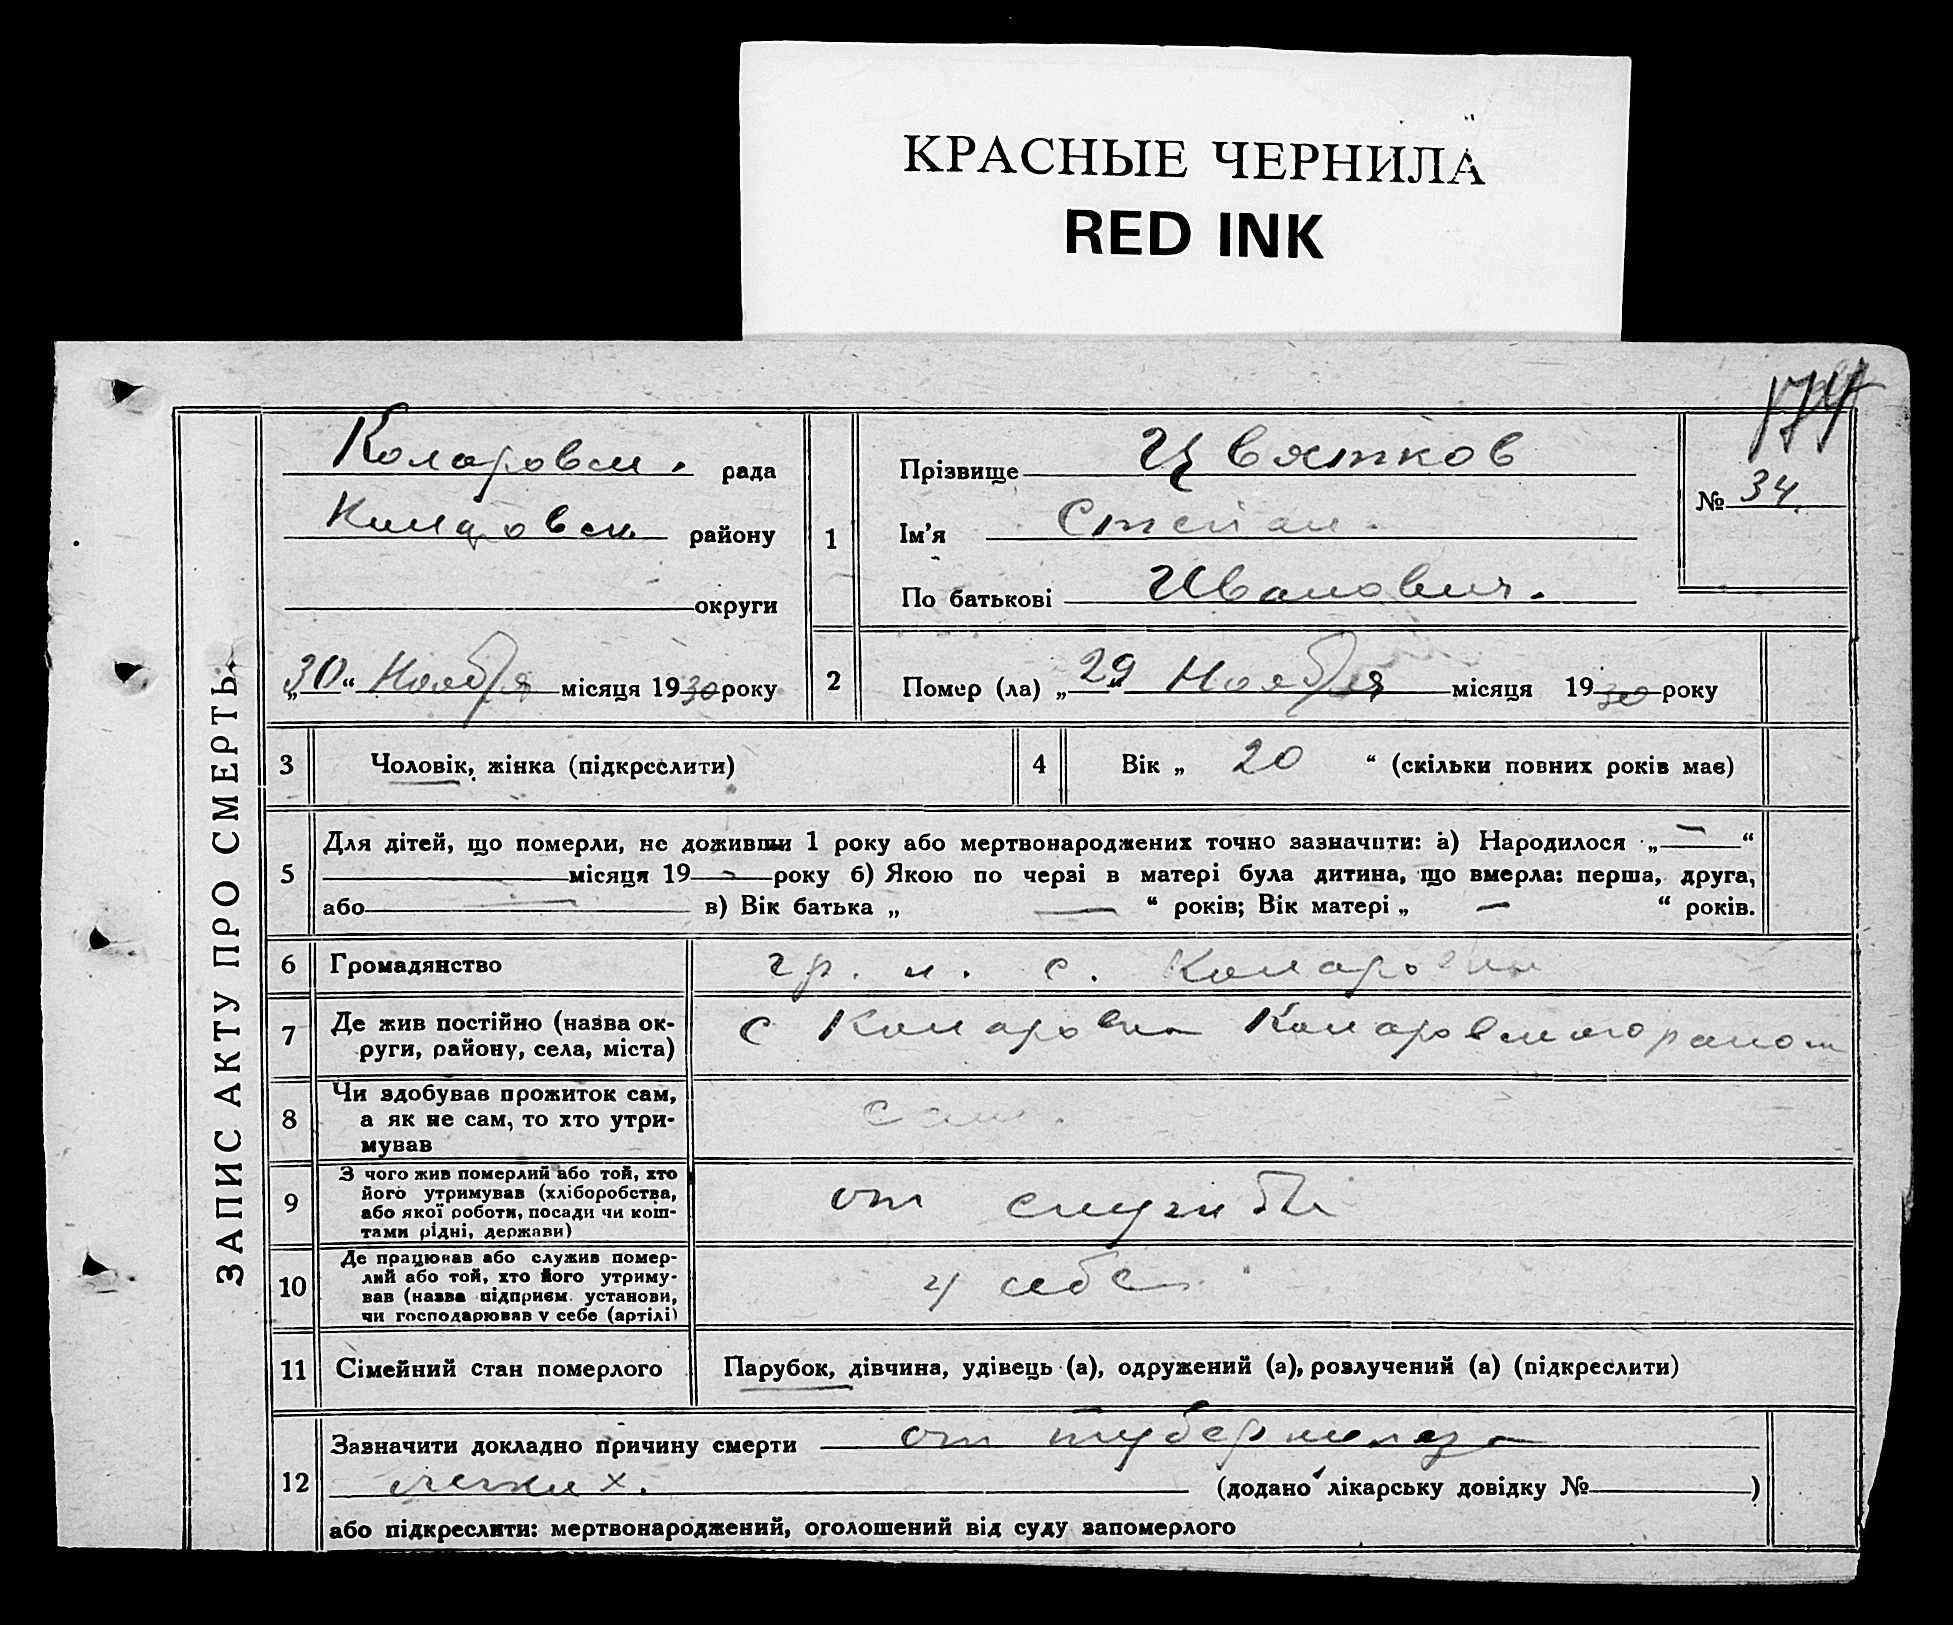 КРАСНЫЕ ЧЕРНИЛА
RED INK
174
ЗАПИС АКТУ ПРО СМЕРТЬ.
Коларовск. рада
району
округи
„30“ Ноября місяця 1930 року
1
Прізвище Цвятков
Ім'я Степан.
По батькові Иванович.
№ 34.
2
Помер (ла) „29“ Ноября місяця 1930 року
3 Чоловік, жінка (підкреслити)
4 Вік „ 20 “ (скільки повних років має)
5
Для дітей, що померли, не доживши 1 року або мертвонароджених точно зазначити: а) Народилося „—“
місяця 19— року б) Якою по черзі в матері була дитина, що вмерла: перша, друга,
або — в) Вік батька „ — “ років; Вік матері „ — “ років.
6 Громадянство гр. с. Коларовки
7
Де жив постійно (назва ок-
руги, району, села, міста)
с Коларовка Коларовского района
8
Чи здобував прожиток сам,
а як не сам, то хто утри-
мував
сам.
9
З чого жив померлий або той, хто
його утримував (хліборобства,
або якої роботи, посади чи кош-
тами рідні, держави)
от службы
10
Де працював або служив помер-
лий або той, хто його утриму-
вав (назва підприєм. установи,
чи господарював у себе (артілі)
у себе
11 Сімейний стан померлого Парубок, дівчина, удівець (а), одружений (а), розлучений (а) (підкреслити)
12
Зазначити докладно причину смерти от туберкулеза
легких. (додано лікарську довідку № )
або підкреслити: мертвонароджений, оголошений від суду запомерлого